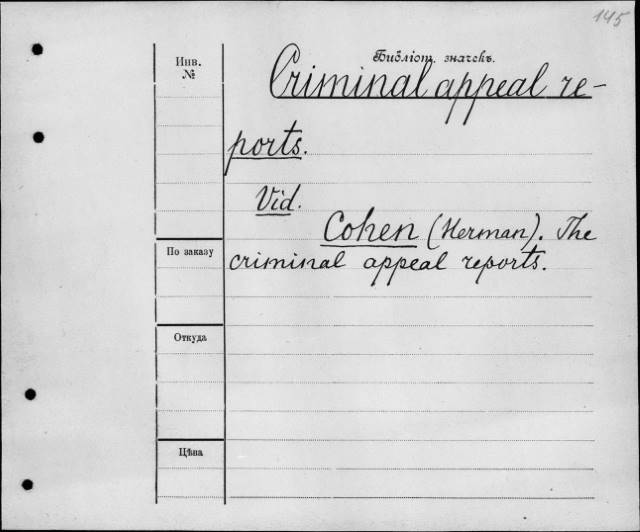 145
Инв.
№
Библіот. значекъ.
Criminal appeal re-
ports.
Vid.
Cohen (Herman). The
criminal appeal reports.
По заказу
Откуда
Цѣна